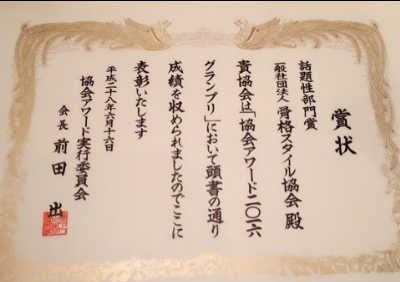 賞状
話題性部門賞
一般社団法人 骨格スタイル協会 殿
貴協会は「協会アワード二〇一六
グランプリ」において頭書の通り
成績を収められましたのでここに
表彰いたします
平成二十八年六月十六日
協会アワード実行委員会
会長 前田 出